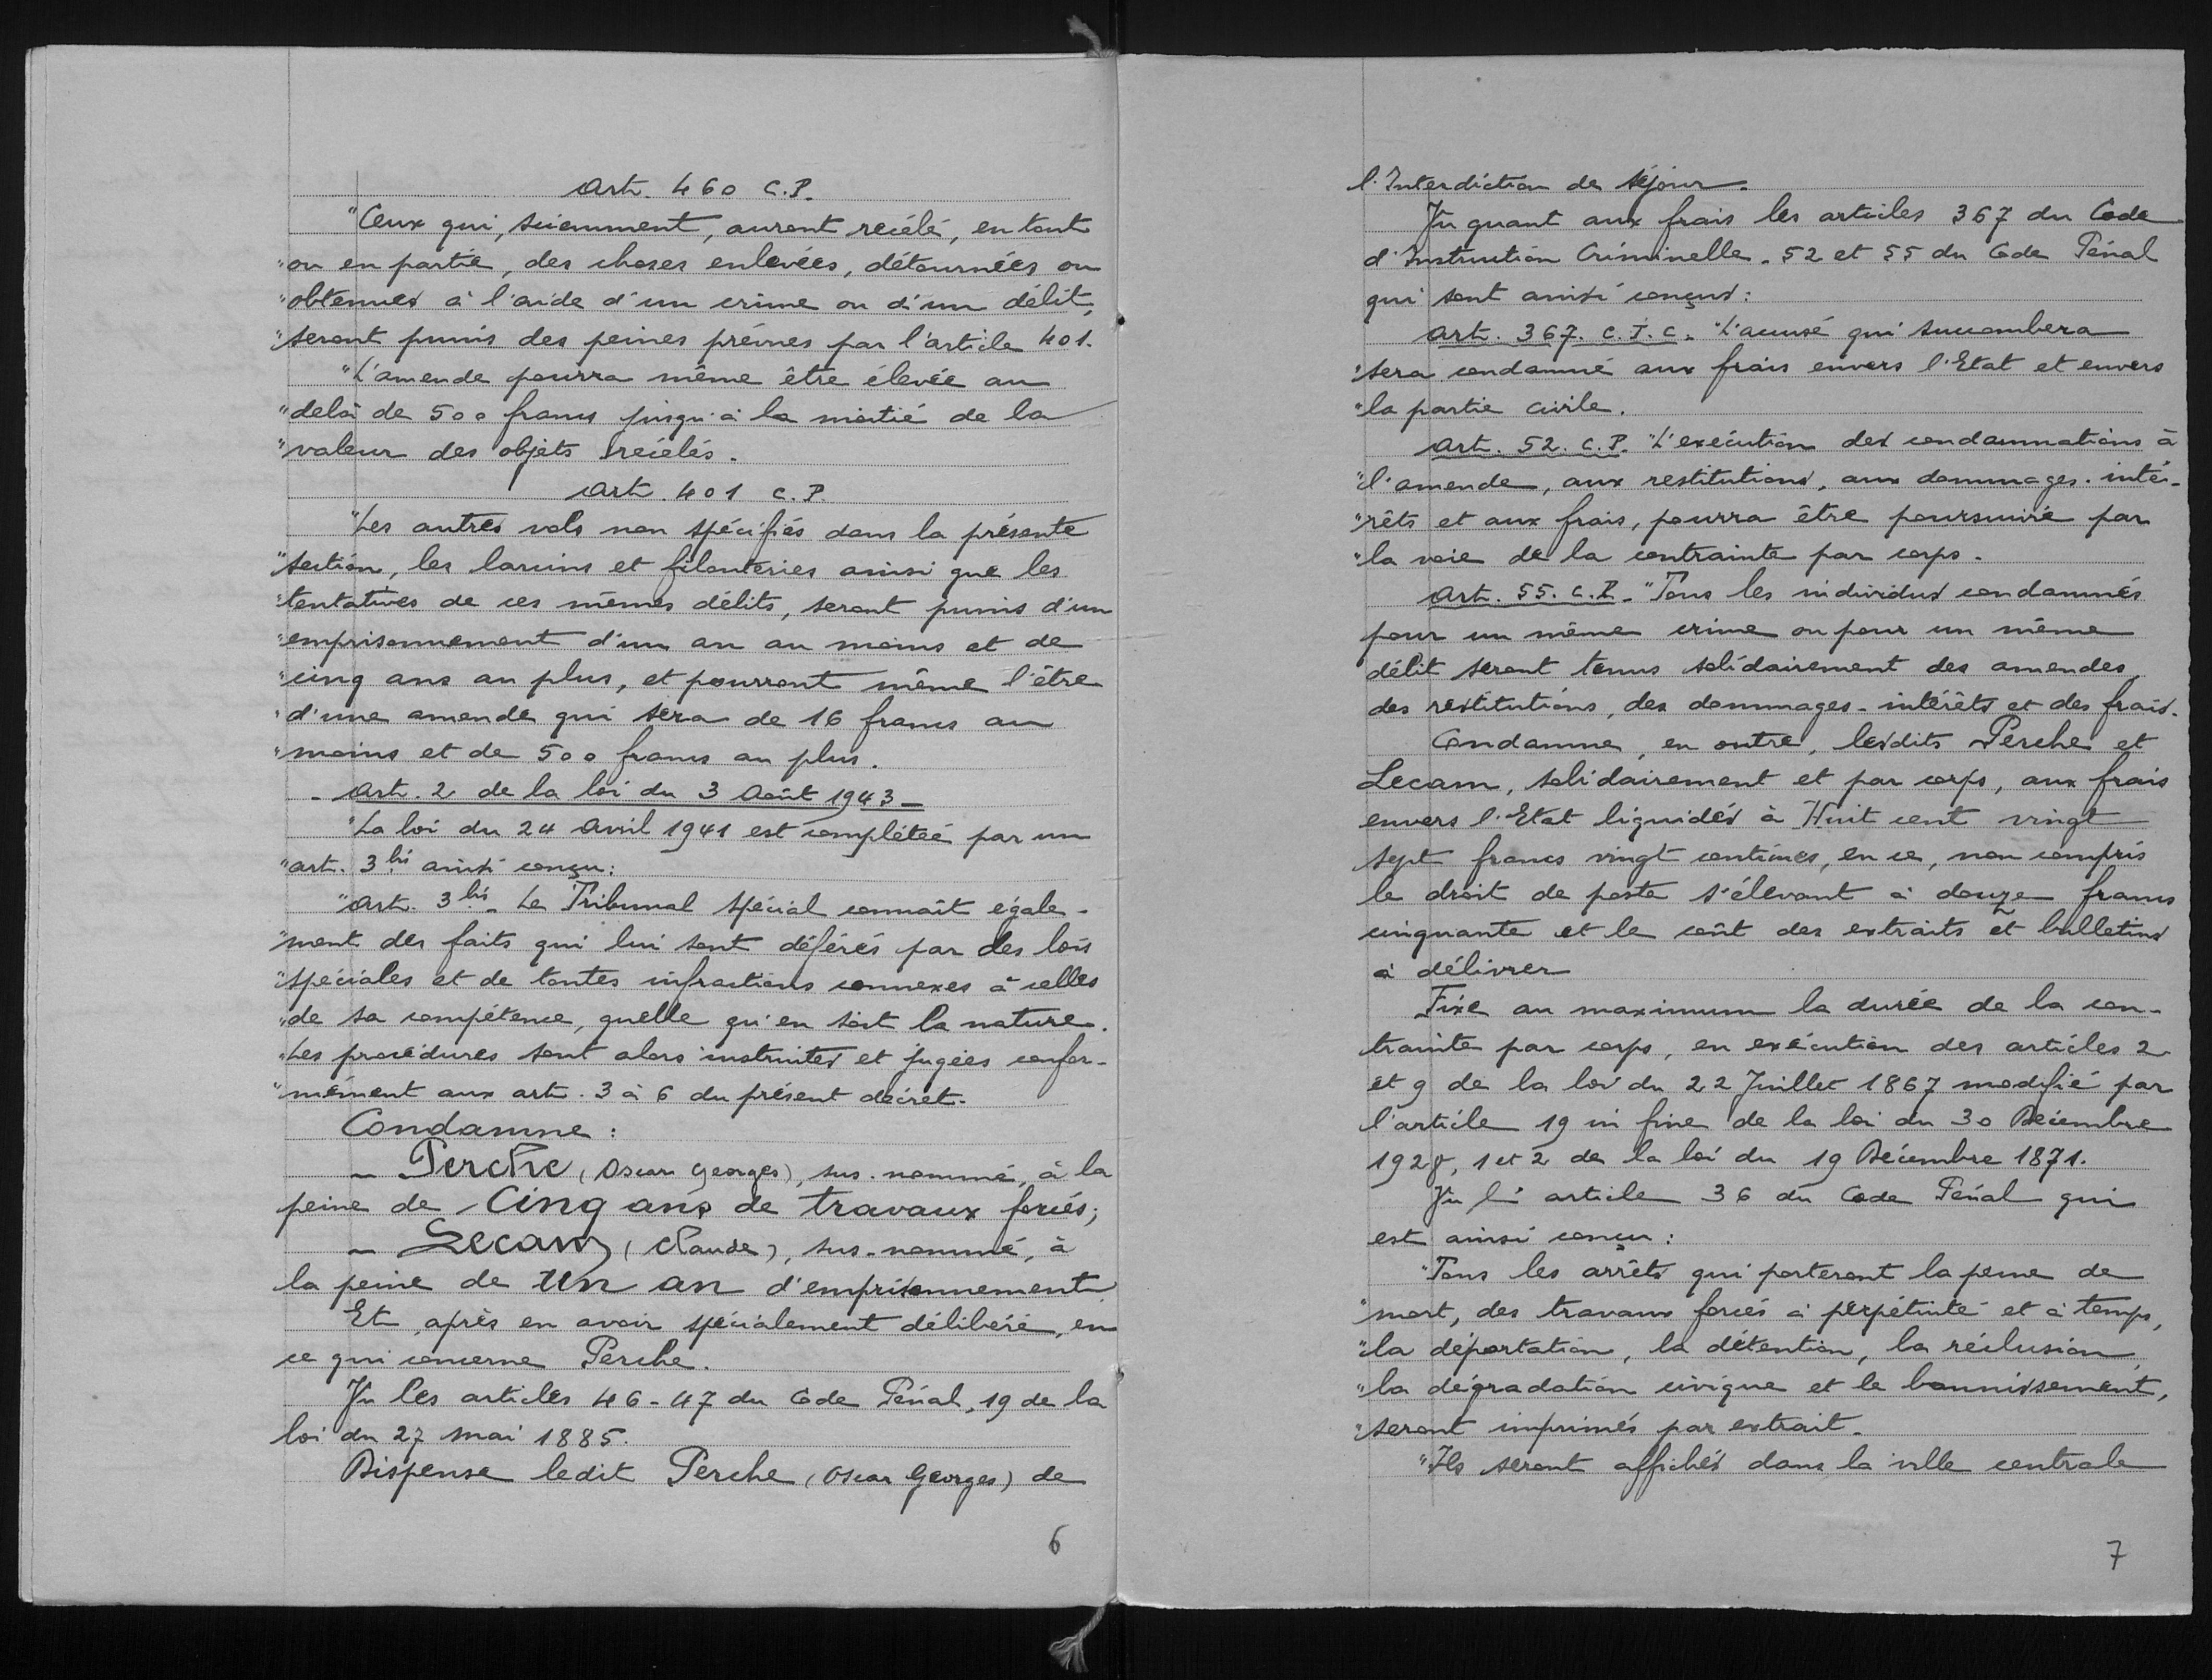 Art. 460 C.P.
"Ceux qui, sciemment, auront recélé, en tout
"ou en partie, des choses enlevées, détournées ou
"obtenues à l'aide d'un crime ou d'un délit,
"seront punis des peines prévues par l'article 401.
"L'amende pourra même être élevée au
"delà de 500 francs jusqu'à la moitié de la
"valeur des objets recélés.
Art. 401 C.P.
"Les autres vols non spécifiés dans la présente
"section, les larcins et filouteries ainsi que les
"tentatives de ces mêmes délits, seront punis d'un
"emprisonnement d'un an au moins et de
"cinq ans au plus, et pourront même l'être
"d'une amende qui sera de 16 francs au
"moins et de 500 francs au plus.
- Art. 2 de la loi du 3 Août 1943 -
"La loi du 24 Avril 1941 est complétée par un
"art. 3 bis ainsi conçu:
"Art. 3 bis - Le Tribunal spécial connaît égale-
"ment des faits qui lui sont déférés par des lois
"spéciales et de toutes infractions connexes à celles
"de sa compétence, quelle qu'en soit la nature.
"Les procédures sont alors instruites et jugées confor-
"mément aux art. 3 à 6 du présent décret.
Condamne:
- Perche (Oscar Georges), sus-nommé, à la
peine de Cinq ans de travaux forcés;
- Lecam (Claude), sus-nommé, à
la peine de Un an d'emprisonnement
Et, après en avoir spécialement délibéré, en
ce qui concerne Perche.
Vu les articles 46-47 du Code Pénal, 19 de la
loi du 27 mai 1885.
Dispense ledit Perche (Oscar Georges) de
6
l'Interdiction de séjour.
Vu quant aux frais les articles 367 du Code
d'Instruction Criminelle. 52 et 55 du Code Pénal
qui sont ainsi conçus:
Art. 367. C.I.C. "L'accusé qui succombera
"sera condamné aux frais envers l'Etat et envers
"la partie civile.
Art. 52. C.P. "L'exécution des condamnations à
"l'amende, aux restitutions, aux dommages-inté-
"rêts et aux frais, pourra être poursuivie par
"la voie de la contrainte par corps.
Art. 55. C.P. "Tous les individus condamnés
pour un même crime ou pour un même
délit seront tenus solidairement des amendes,
des restitutions, des dommages-intérêts et des frais.
Condamne, en outre, lesdits Perche et
Lecam, solidairement et par corps, aux frais
envers l'Etat liquidés à Huit cent vingt
sept francs vingt centimes, en ce, non compris
le droit de poste s'élevant à douze francs
cinquante et le coût des extraits et bulletins
à délivrer
Fixe au maximum la durée de la con-
trainte par corps, en exécution des articles 2
et 9 de la loi du 22 Juillet 1867 modifié par
l'article 19 in fine de la loi du 30 Décembre
1928, 1 et 2 de la loi du 19 Décembre 1871.
Vu l'article 36 du Code Pénal qui
est ainsi conçu:
"Tous les arrêts qui porteront la peine de
"mort, des travaux forcés à perpétuité et à temps,
"la déportation, la détention, la réclusion,
"la dégradation civique et le bannissement,
"seront imprimés par extrait.
"Ils seront affichés dans la ville centrale
7